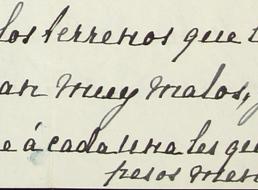 los terrenos que t
an muy malos,
e á cada una les que
pesos men